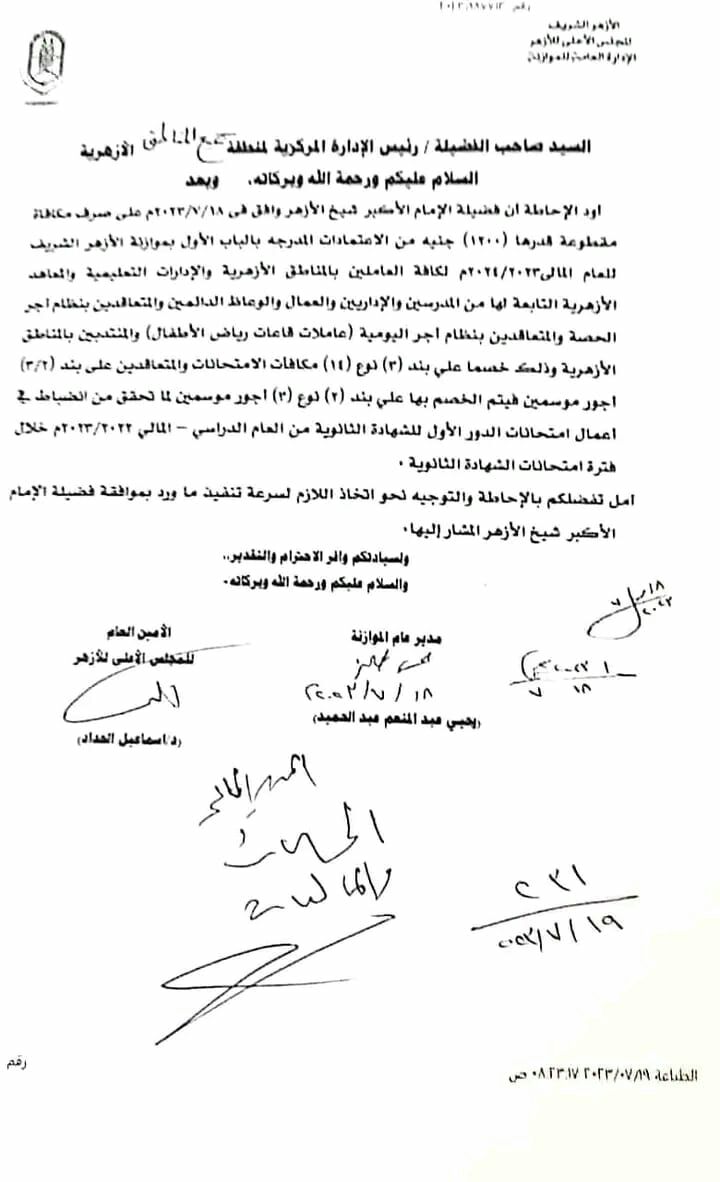 الأزهر الشريف
المجلس الأعلى للأزهر
الإدارة العامة للموازنة
السيد صاحب الفضيلة / رئيس الإدارة المركزية لمنطقة جميع المناطق الأزهرية
السلام عليكم ورحمة الله وبركاته، وبعد
اود الإحاطة أن فضيلة الإمام الأكبر شيخ الأزهر وافق فى ٢٠٢٣/٧/١٨م على صرف مكافاة
مقطوعة قدرها (١٢٠٠) جنيه من الاعتمادات المدرجه بالباب الأول بموازنة الأزهر الشريف
للعام المالى ٢٠٢٤/٢٠٢٣م لكافة العاملين بالمناطق الأزهرية والإدارات التعليمية والمعاهد
الأزهرية التابعة لها من المدرسين والإداريين والعمال والوعاظ الدائمين والمتعاقدين بنظام اجر
الحصة والمتعاقدين بنظام اجر اليومية (عاملات قاعات رياض الأطفال) والمنتدبين بالمناطق
الأزهرية وذلك خصما علي بند (٣) نوع (١٤) مكافآت الامتحانات والمتعاقدين على بند (٣/٢)
اجور موسمين فيتم الخصم بها علي بند (٢) نوع (٣) اجور موسمين لما تحقق من انضباط في
اعمال امتحانات الدور الأول للشهادة الثانوية من العام الدراسي – المالي ٢٠٢٣/٢٠٢٢م خلال
فترة امتحانات الشهادة الثانوية .
امل تفضلكم بالإحاطة والتوجيه نحو اتخاذ اللازم لسرعة تنفيذ ما ورد بموافقة فضيلة الإمام
الأكبر شيخ الأزهر المشار إليها.
ولسيادتكم وافر الاحترام والتقدير،،
والسلام عليكم ورحمة الله وبركاته.
مدير عام الموازنة
٢٠٢٣/٧/١٨
(يحيي عبد المنعم عبد الحميد)
الأمين العام
للمجلس الأعلى للأزهر
(د/اسماعيل الحداد)
٢٣١
٢٠٢٣/٧/١٩
رقم
الطباعة ٢٠٢٣/٠٧/١٩ ٠٨:٢٣:١٧ ص